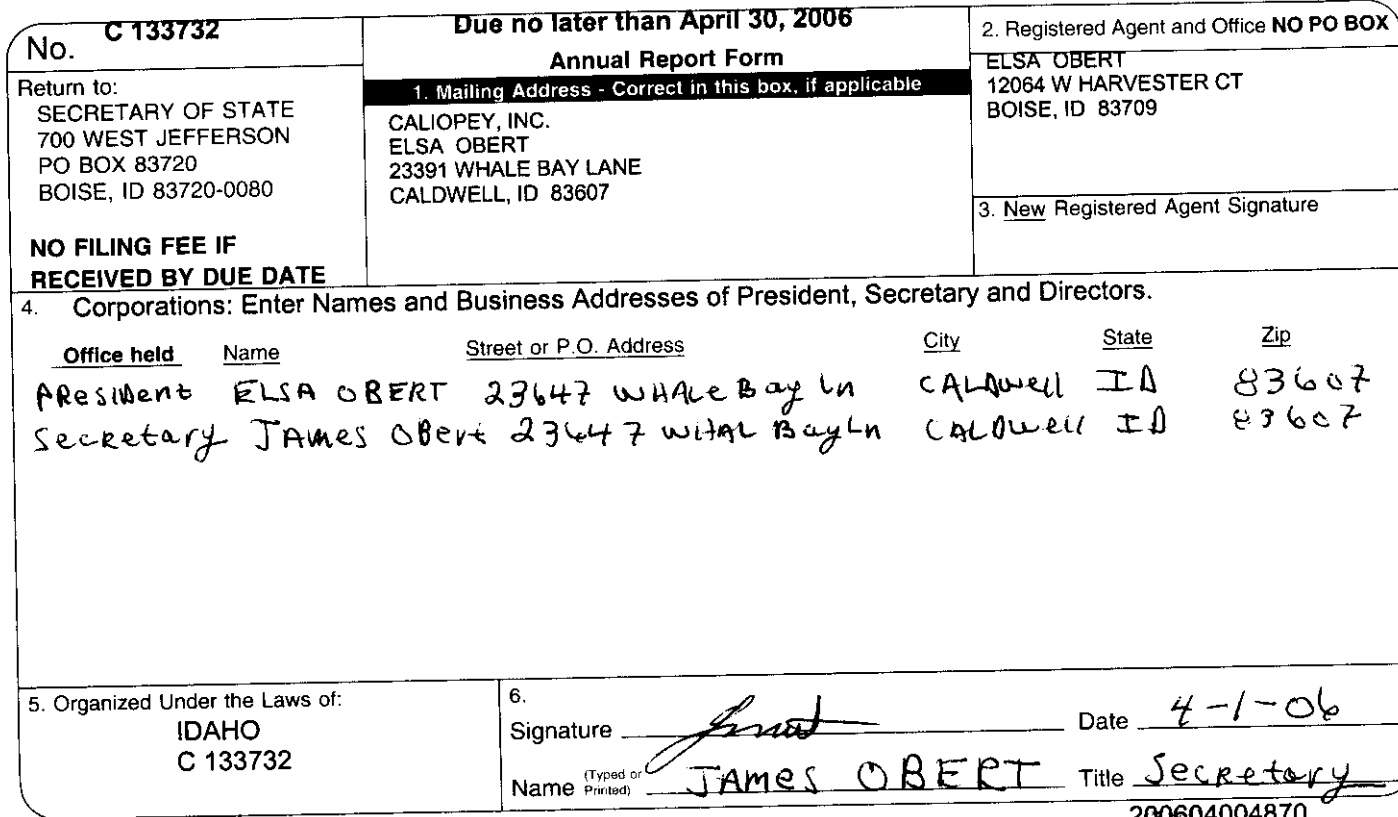 No. C 133732
Return to:
SECRETARY OF STATE
700 WEST JEFFERSON
PO BOX 83720
BOISE, ID 83720-0080
NO FILING FEE IF
RECEIVED BY DUE DATE
Due no later than April 30, 2006
Annual Report Form
1. Mailing Address - Correct in this box, if applicable
CALIOPEY, INC.
ELSA OBERT
23391 WHALE BAY LANE
CALDWELL, ID 83607
2. Registered Agent and Office NO PO BOX
ELSA OBERT
12064 W HARVESTER CT
BOISE, ID 83709
3. New Registered Agent Signature
4. Corporations: Enter Names and Business Addresses of President, Secretary and Directors.
Office held Name Street or P.O. Address City State Zip
PResident ELSA OBERT 23647 WHALe Bay Ln CALDwell ID 83607
Secretary JAmes OBert 23647 WHAL Bay Ln CALDwell ID 83607
5. Organized Under the Laws of:
IDAHO
C 133732
6.
Signature Date 4-1-06
Name (Typed or Printed) JAmes OBERT Title Secretary
200604004870